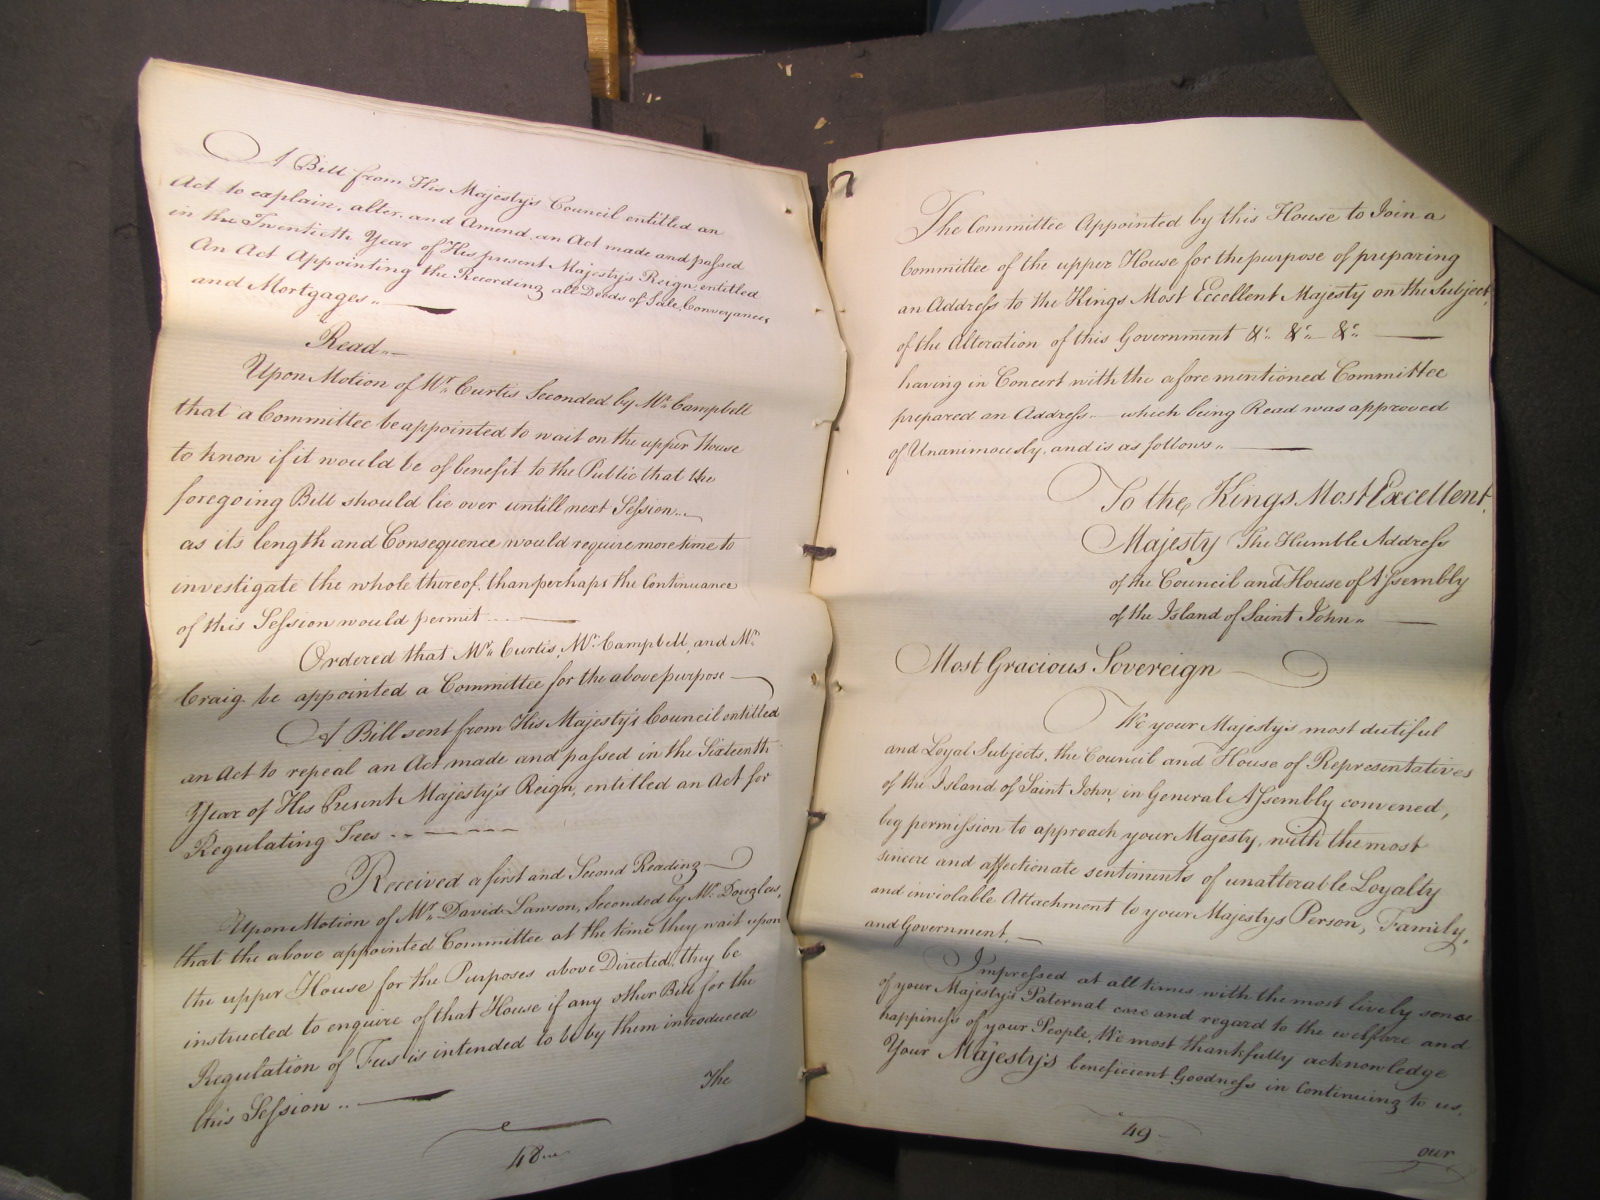 A Bill from His Majesty's Council entitled an
Act to explain, alter, and Amend an Act made and passed
in the Twentieth Year of His present Majesty's Reign entitled
An Act Appointing the Recording all Deeds of Sale, Conveyances
and Mortgages..
Read..
Upon Motion of Mr. Curtis Seconded by Mr. Campbell
that a Committee be appointed to wait on the upper House
to know if it would be of benefit to the Public that the
foregoing Bill should lie over untill next Session..
as its length and Consequence would require more time to
investigate the whole thereof, than perhaps the Continuance
of this Session would permit
Ordered that Mr. Curtis, Mr. Campbell, and Mr.
Craig be appointed a Committee for the above purpose
A Bill sent from His Majesty's Council entitled
an Act to repeal an Act made and passed in the Sixteenth
Year of His Present Majesty's Reign, entitled an Act for
Regulating Fees
Received a first and Second Reading
Upon Motion of Mr. David Lawson, Seconded by Mr. Douglas,
that the above appointed Committee at the time they wait upon
the upper House for the Purposes above Directed, they be
instructed to enquire of that House if any other Bill for the
Regulation of Fees is intended to be by them introduced
this Session..
The
48
The Committee Appointed by this House to Join a
Committee of the upper House for the purpose of preparing
an Address to the Kings Most Eccellent Majesty on the Subject,
of the Alteration of this Government &c. &c. &c.
having in Concert with the afore mentioned Committee
prepared an Address.. which being Read was approved
of Unanimously, and is as follows..
To the Kings Most Excellent,
Majesty The Humble Address
of the Council and House of Assembly
of the Island of Saint John..
Most Gracious Sovereign
We your Majesty's most dutiful
and Loyal Subjects, the Council and House of Representatives
of the Island of Saint John, in General Assembly convened,
beg permission to approach your Majesty, with the most
sincere and affectionate sentiments of unalterable Loyalty
and inviolable Attachment to your Majestys Person, Family,
and Government,
Impressed at all times with the most lively sense
of your Majesty's Paternal care and regard to the welfare and
happiness of your People, We most thankfully acknowledge
Your Majesty's beneficient Goodness in Continuing to us,
49
our